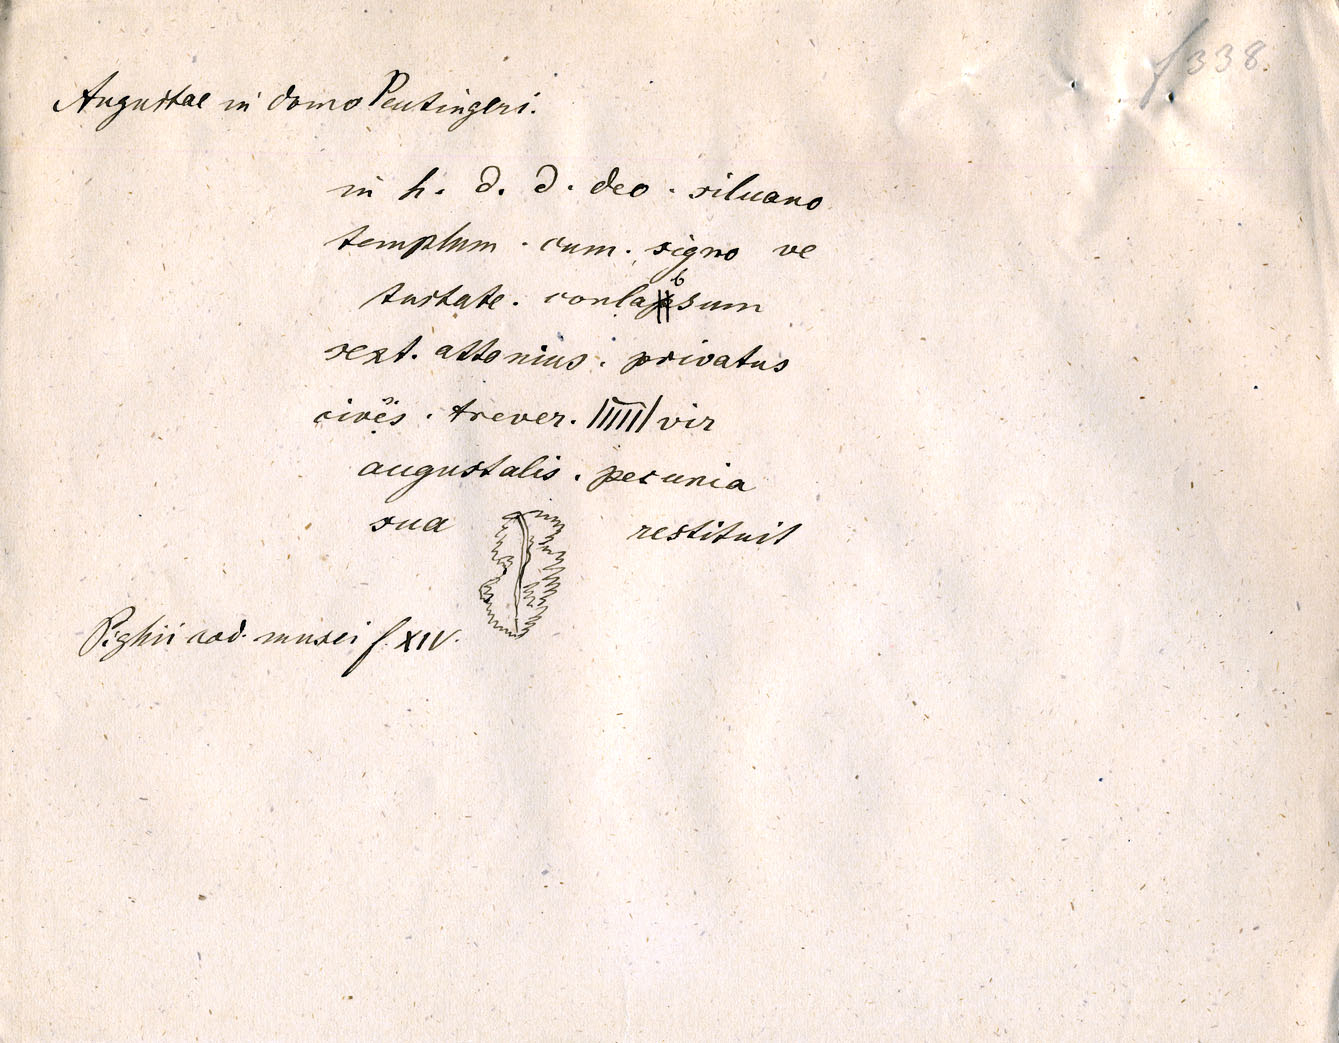 f 338.
Augustae in domo Peutingeri.
in h. d. d. deo · siluano
templum · cum · signo ve
tustate. conlabsum
sext. attonius. privatus
cives · trever. IIIIII vir
augustalis. pecunia
sua restituit
Pighii cod. musei f. XIV.